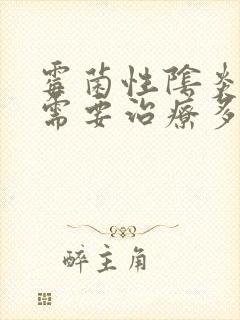 霉菌性陰炎
需要治療多
醉主角